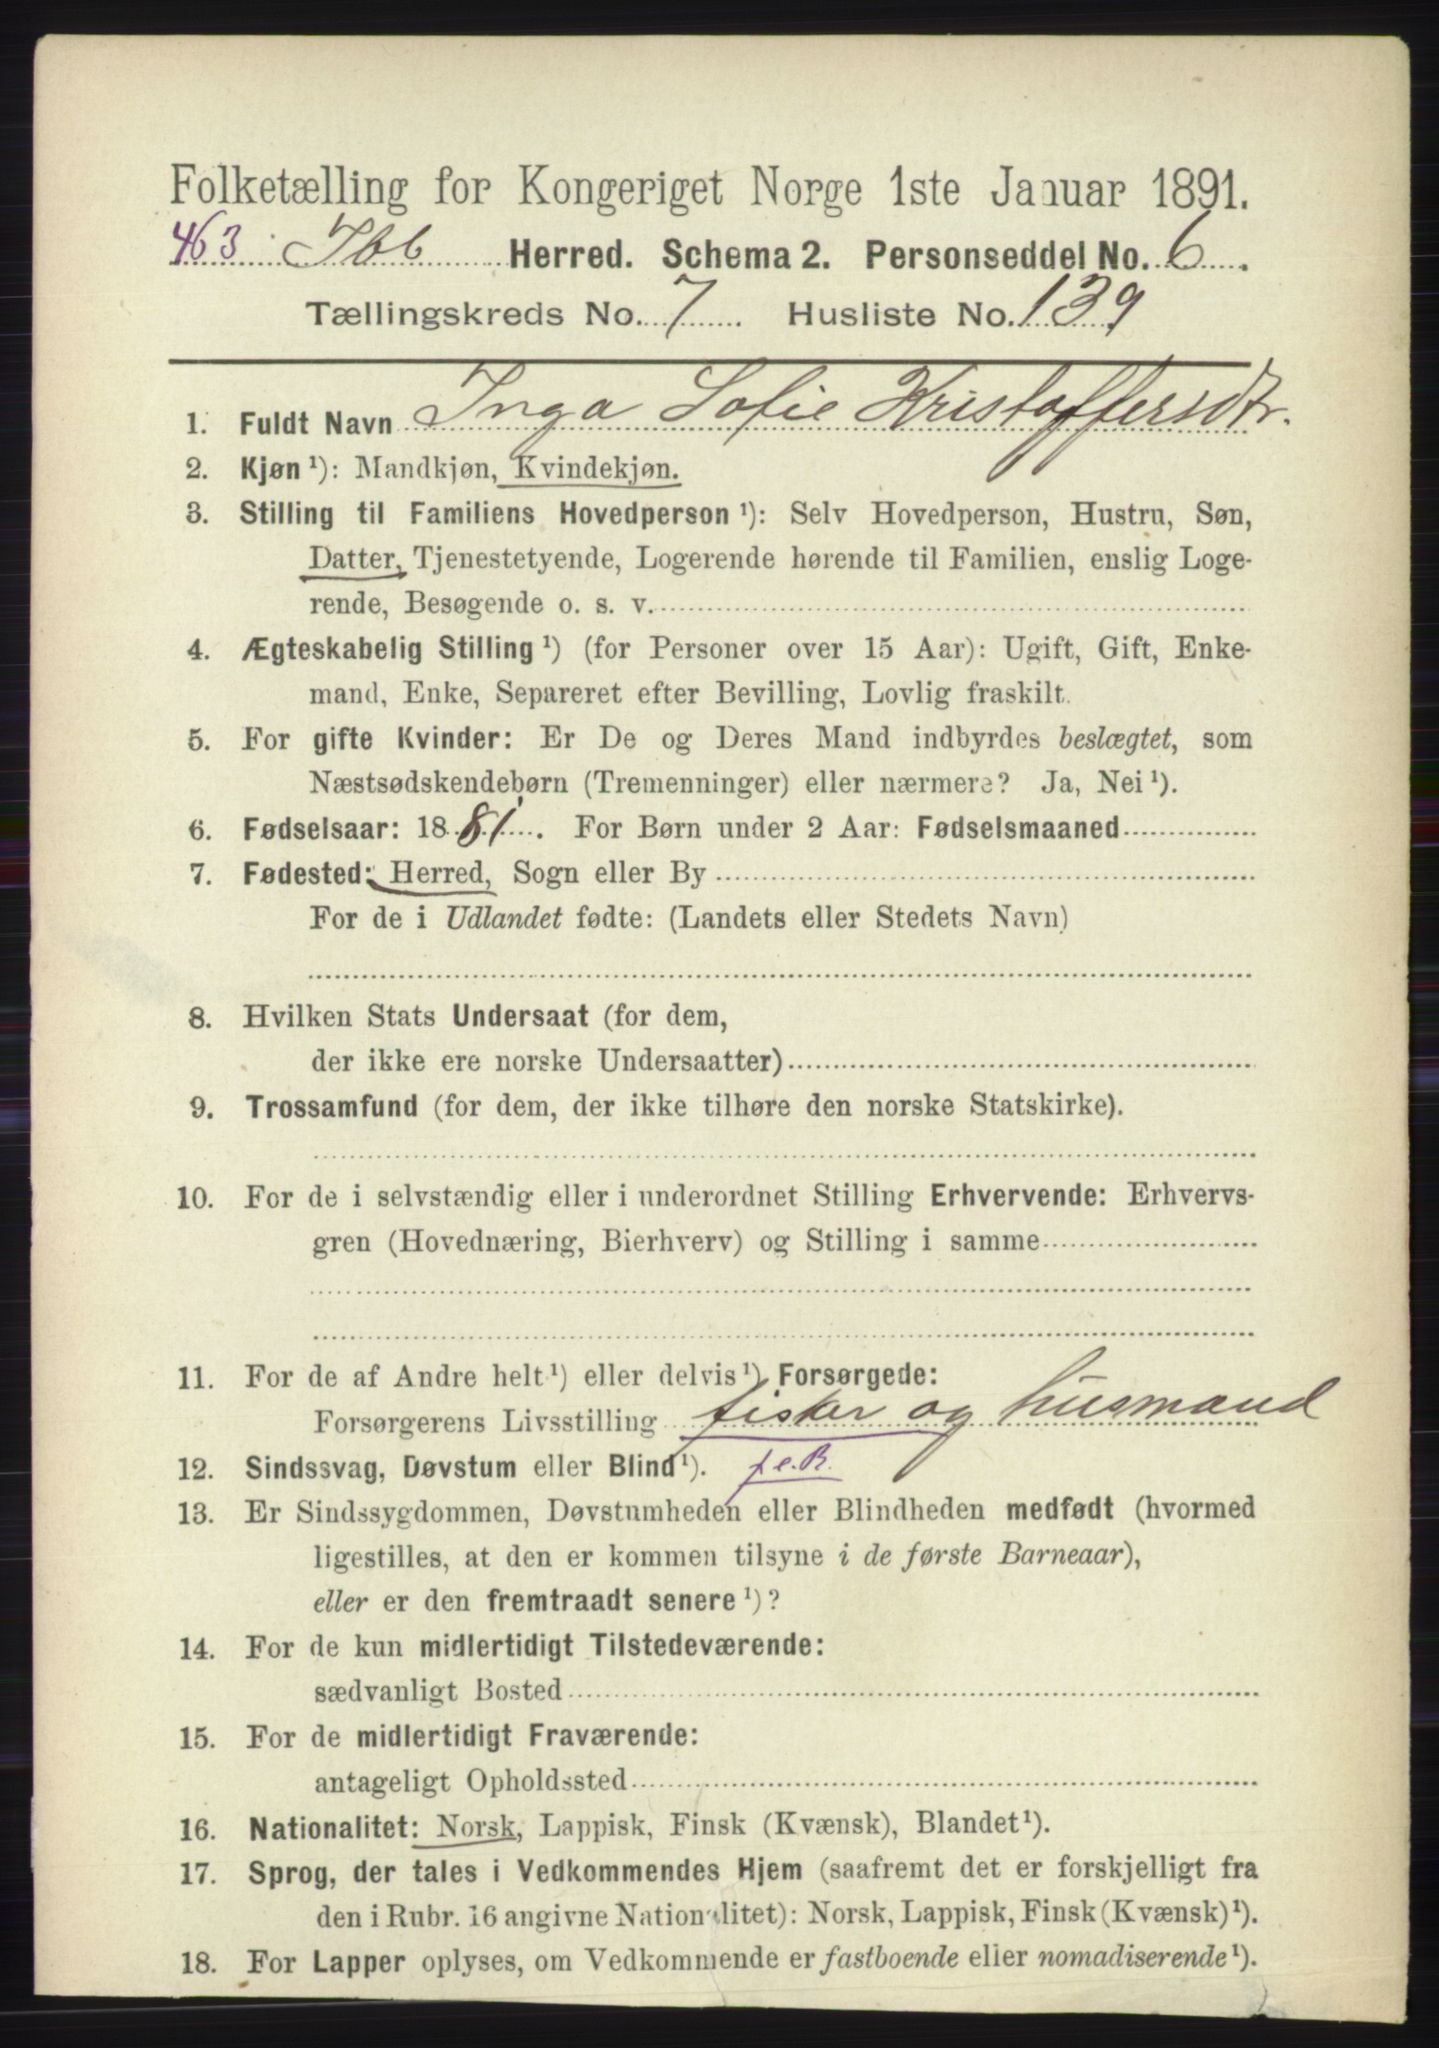 Folketælling for Kongeriget Norge 1ste Januar 1891.
463. Ibb Herred. Schema 2. Personseddel No. 6.
Tællingskreds No. 7 Husliste No. 139
1. Fuldt Navn Inga Sofie Kristoffersdtr.
2. Kjøn ¹): Mandkjøn, Kvindekjøn.
3. Stilling til Familiens Hovedperson ¹): Selv Hovedperson, Hustru, Søn,
Datter, Tjenestetyende, Logerende hørende til Familien, enslig Loge-
rende, Besøgende o. s. v.
4. Ægteskabelig Stilling ¹) (for Personer over 15 Aar): Ugift, Gift, Enke-
mand, Enke, Separeret efter Bevilling, Lovlig fraskilt.
5. For gifte Kvinder: Er De og Deres Mand indbyrdes beslægtet, som
Næstsødskendebørn (Tremenninger) eller nærmere? Ja, Nei ¹).
6. Fødselsaar: 1881. For Børn under 2 Aar: Fødselsmaaned
7. Fødested: Herred, Sogn eller By
For de i Udlandet fødte: (Landets eller Stedets Navn)
8. Hvilken Stats Undersaat (for dem,
der ikke ere norske Undersaatter)
9. Trossamfund (for dem, der ikke tilhøre den norske Statskirke).
10. For de i selvstændig eller i underordnet Stilling Erhvervende: Erhvervs-
gren (Hovednæring, Bierhverv) og Stilling i samme
11. For de af Andre helt ¹) eller delvis ¹) Forsørgede:
Forsørgerens Livsstilling fisker og husmand
12. Sindssvag, Døvstum eller Blind ¹). f.e.R.
13. Er Sindssygdommen, Døvstumheden eller Blindheden medfødt (hvormed
ligestilles, at den er kommen tilsyne i de første Barneaar),
eller er den fremtraadt senere ¹)?
14. For de kun midlertidigt Tilstedeværende:
sædvanligt Bosted
15. For de midlertidigt Fraværende:
antageligt Opholdssted
16. Nationalitet: Norsk, Lappisk, Finsk (Kvænsk), Blandet ¹).
17. Sprog, der tales i Vedkommendes Hjem (saafremt det er forskjelligt fra
den i Rubr. 16 angivne Nationalitet): Norsk, Lappisk, Finsk (Kvænsk) ¹).
18. For Lapper oplyses, om Vedkommende er fastboende eller nomadiserende ¹).